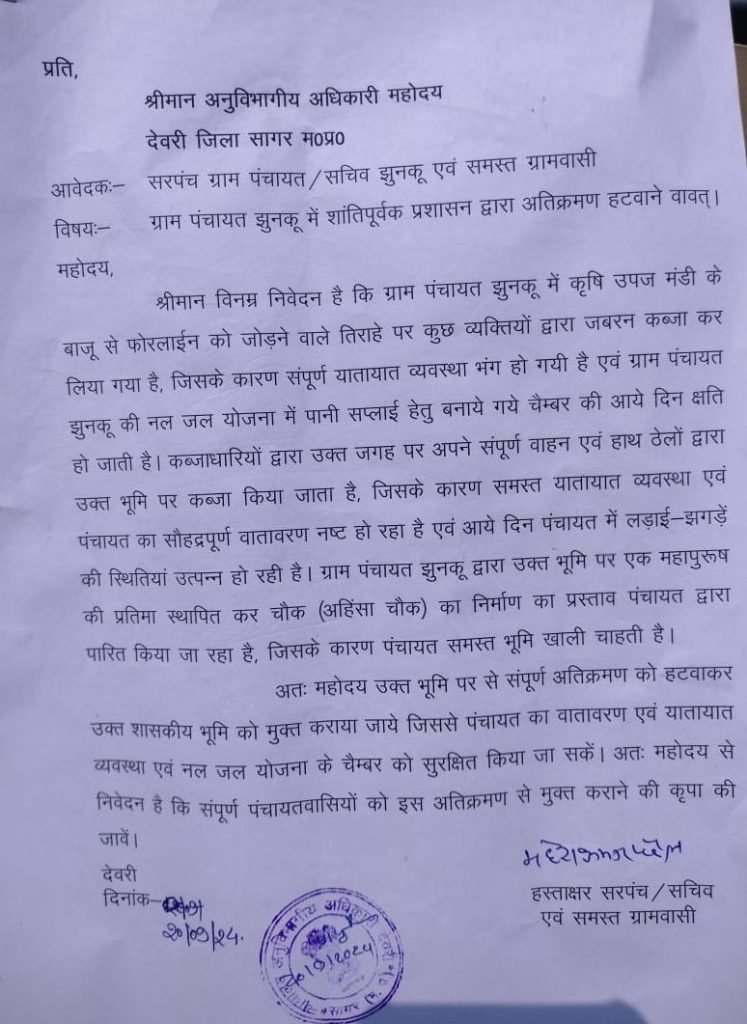 प्रति,
श्रीमान अनुविभागीय अधिकारी महोदय
देवरी जिला सागर म0प्र0
आवेदकः– सरपंच ग्राम पंचायत/सचिव झुनकू एवं समस्त ग्रामवासी
विषयः– ग्राम पंचायत झुनकू में शांतिपूर्वक प्रशासन द्वारा अतिक्रमण हटवाने वावत्।
महोदय,
श्रीमान विनम्र निवेदन है कि ग्राम पंचायत झुनकू में कृषि उपज मंडी के
बाजू से फोरलाईन को जोड़ने वाले तिराहे पर कुछ व्यक्तियों द्वारा जबरन कब्जा कर
लिया गया है, जिसके कारण संपूर्ण यातायात व्यवस्था भंग हो गयी है एवं ग्राम पंचायत
झुनकू की नल जल योजना में पानी सप्लाई हेतु बनाये गये चैम्बर की आये दिन क्षति
हो जाती है। कब्जाधारियों द्वारा उक्त जगह पर अपने संपूर्ण वाहन एवं हाथ ठेलों द्वारा
उक्त भूमि पर कब्जा किया जाता है, जिसके कारण समस्त यातायात व्यवस्था एवं
पंचायत का सौहद्रपूर्ण वातावरण नष्ट हो रहा है एवं आये दिन पंचायत में लड़ाई–झगड़ें
की स्थितियां उत्पन्न हो रही है। ग्राम पंचायत झुनकू द्वारा उक्त भूमि पर एक महापुरूष
की प्रतिमा स्थापित कर चौक (अहिंसा चौक) का निर्माण का प्रस्ताव पंचायत द्वारा
पारित किया जा रहा है, जिसके कारण पंचायत समस्त भूमि खाली चाहती है।
अतः महोदय उक्त भूमि पर से संपूर्ण अतिक्रमण को हटवाकर
उक्त शासकीय भूमि को मुक्त कराया जाये जिससे पंचायत का वातावरण एवं यातायात
व्यवस्था एवं नल जल योजना के चैम्बर को सुरक्षित किया जा सकें। अतः महोदय से
निवेदन है कि संपूर्ण पंचायतवासियों को इस अतिक्रमण से मुक्त कराने की कृपा की
जावें।
देवरी
दिनांक–
२०/०९/२४.
हस्ताक्षर सरपंच/सचिव
एवं समस्त ग्रामवासी
अनुविभागीय अधिकारी देवरी
सागर (म.प्र.)